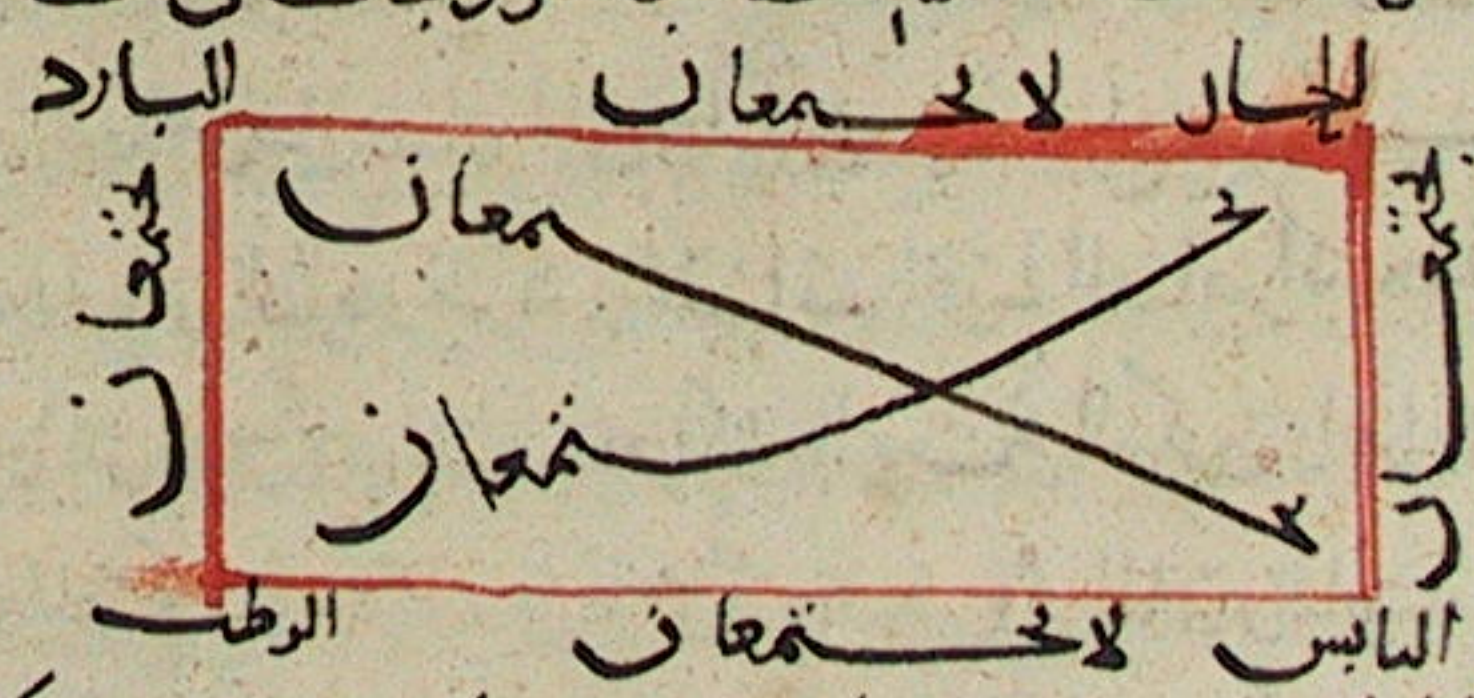 الحار لا يجتمعان البارد
يجتمعان
يجتمعان
يجتمعان
يجتمعان
اليابس لا يجتمعان الرطب